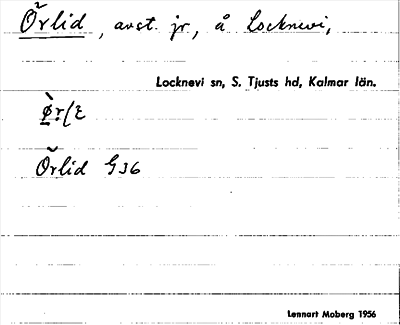 Örlid, avst. jr, å Locknevi,
Locknevi sn, S. Tjusts hd, Kalmar län.
Örlid G36
Lennart Moberg 1956